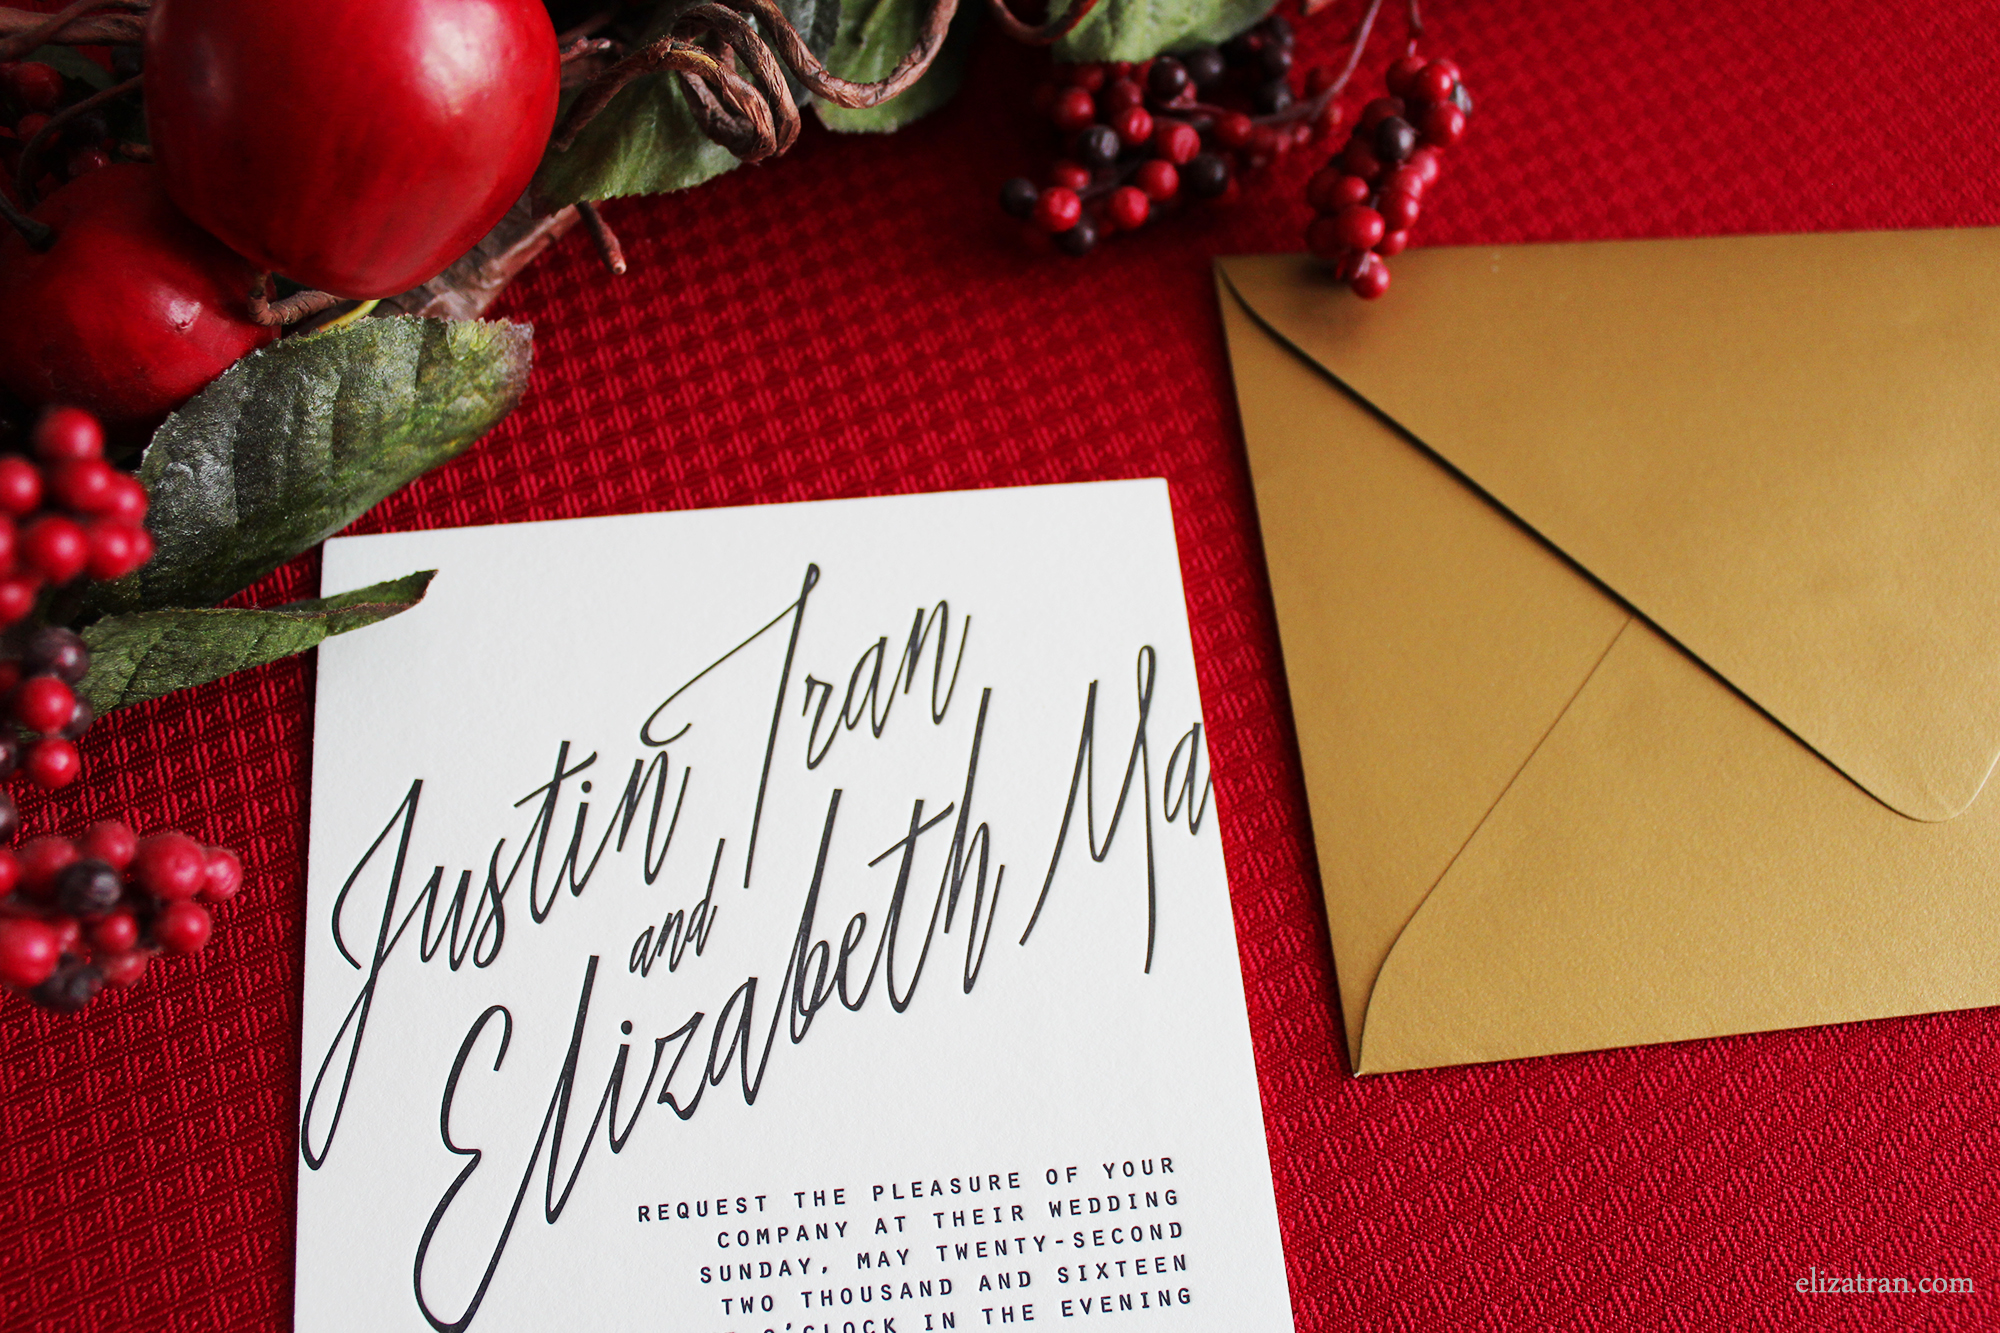 Justin Tran
and
Elizabeth Ma
REQUEST THE PLEASURE OF YOUR
COMPANY AT THEIR WEDDING
SUNDAY, MAY TWENTY-SECOND
TWO THOUSAND AND SIXTEEN
O'CLOCK IN THE EVENING
elizatran.com